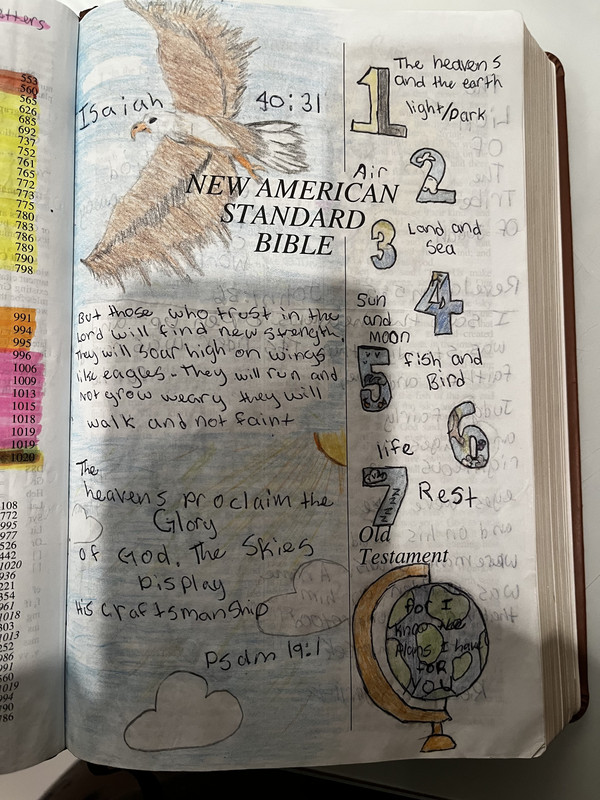 etters
553
560
565
626
685
692
737
752
761
765
772
773
775
780
783
786
789
790
798
991
994
995
996
1006
1009
1013
1015
1018
1019
1019
1020
108
772
995
977
526
442
1020
936
221
354
961
1018
303
1013
252
986
991
560
1019
994
790
786
Isaiah 40:31
NEW AMERICAN
STANDARD
BIBLE
But those who trust in the
Lord will find new strength.
They will soar high on wings
like eagles. They will run and
not grow weary they will
walk and not faint
The
heavens proclaim the
Glory
of God. The Skies
Display
His craftsmanship
Psalm 19:1
1
The heavens
and the earth
light/Dark
Air
2
3
Land and
Sea
Sun
and
Moon
4
5
fish and
Bird
6
life
7
Rest
Old
Testament
for I
know the
Plans I have
for
YOU